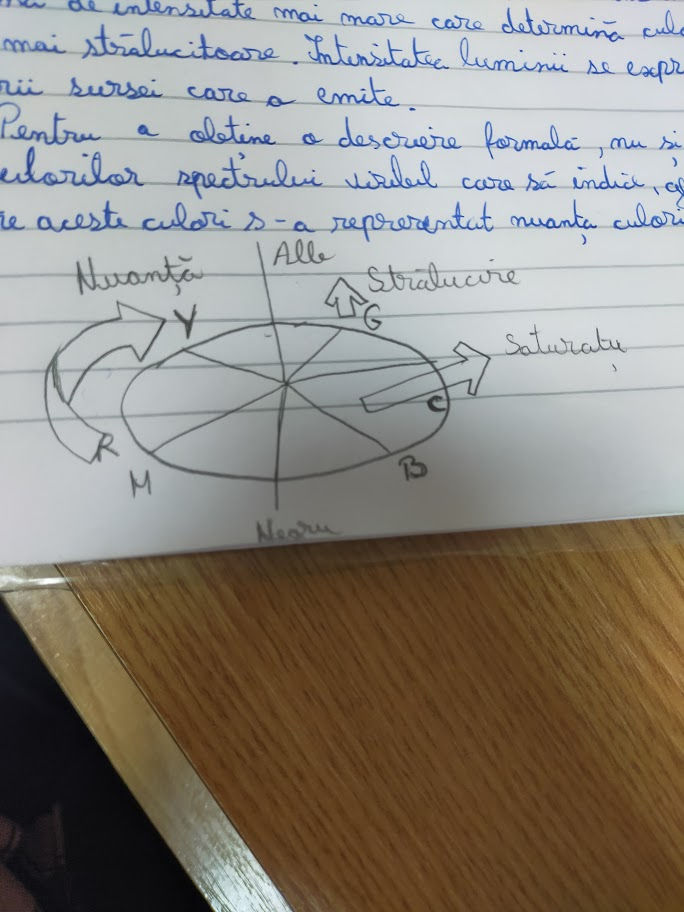 de intensitate mai mare care determină
mai strălucitoare. Intensitatea luminii se
sursei care o emite.
Pentru a obține o descriere formală, nu și
spectrului care să indice,
aceste culori s-a reprezentat nuanța
Albe
Nuanță
Strălucire
Y
G
Saturație
C
R
M
B
Negru